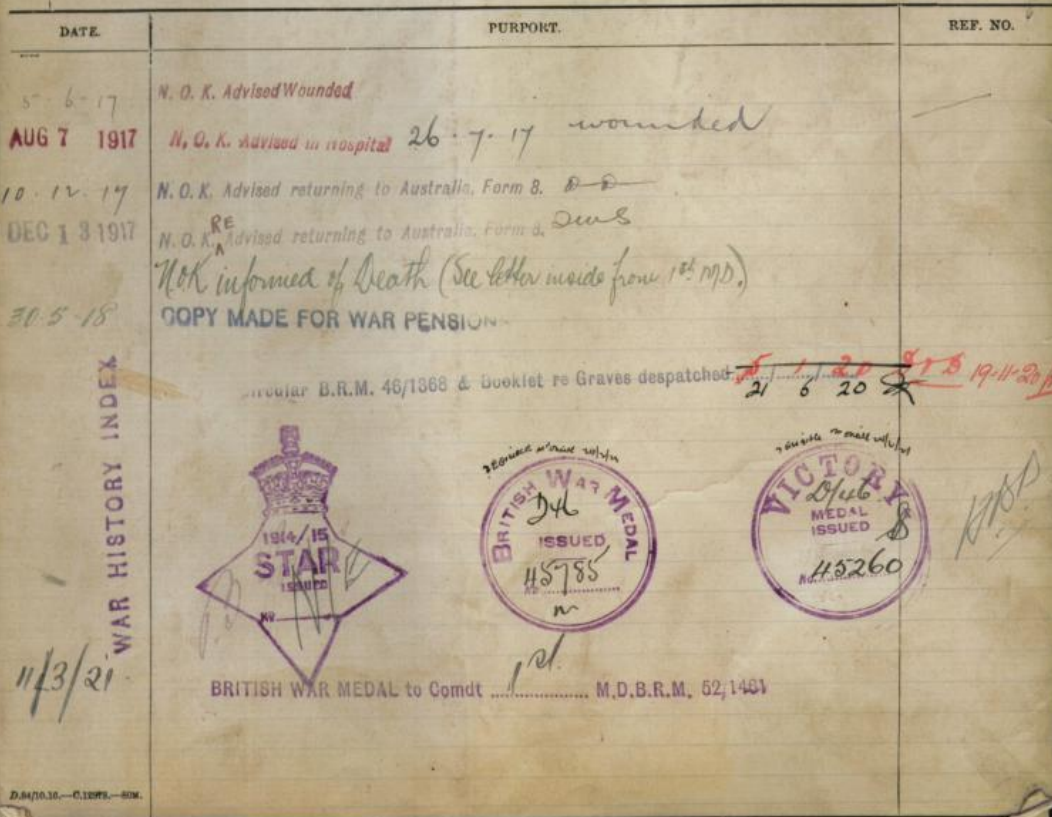 DATE. PURPORT. REF. NO.
5-6-17 N. O. K. Advised Wounded
AUG 7 1917 N. O. K. Advised in Hospital 26.7.17 wounded
10.12.17 N. O. K. Advised returning to Australia. Form 8.
DEC 13 1917 N. O. K. RE Advised returning to Australia. Form 8.
NOK informed of Death (See letter inside from 1st M.D.)
30.5-18 COPY MADE FOR WAR PENSION
Circular B.R.M. 46/1368 & Booklet re Graves despatched 5 1 20 19-11-20
21 6 20
WAR HISTORY INDEX
1914/15
STAR
ISSUED
No
BRITISH WAR MEDAL
ISSUED
No 45785
VICTORY
MEDAL
ISSUED
No. 45260
11/3/21
BRITISH WAR MEDAL to Comdt 1st. M.D.B.R.M. 52,1461
D.84/10.16.—C.12973.—50M.